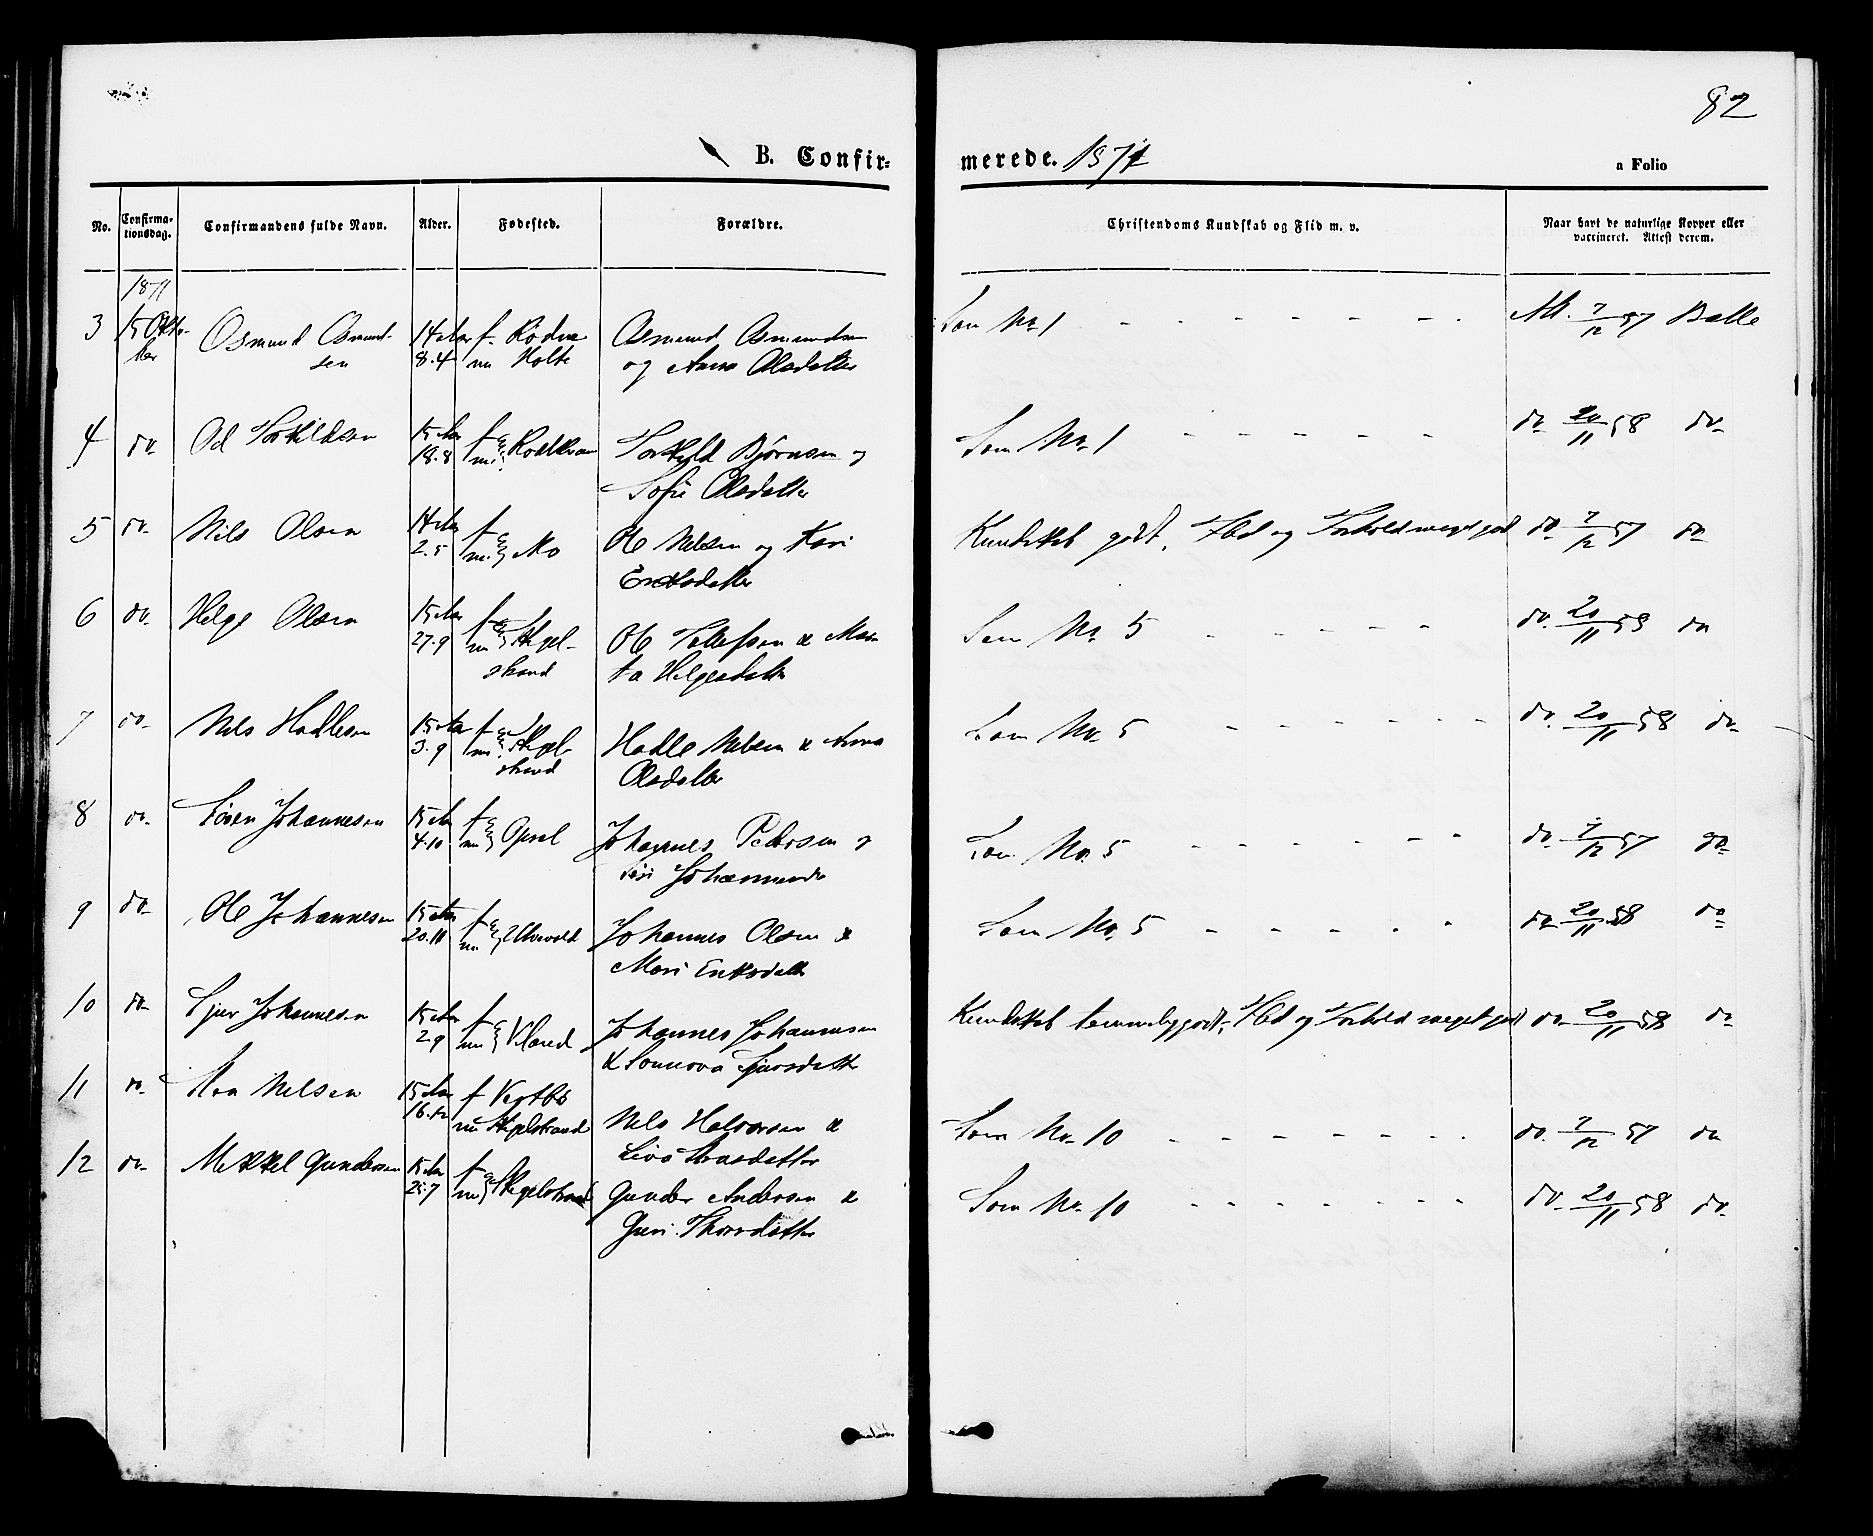 82
B. Confir-
merede. 1871
a Folio
No.
Confirma-
tionsdag.
Confirmandens fulde Navn.
Alder.
Fødested.
Forældre.
Christendoms Kundskab og Flid m. v.
Naar havt de naturlige Kopper eller
vaccineret. Attest derom.
1871
3 15 Octo- Osmund Osmund- 14 Aar f. Osmund Osmundsen Som No 1 - - - - - - - Att. 7/12 57 Balle
ber sen 8.4 nu Holte og Anna Olsdatter
4 do. Od Torkildsen 15 Aar f Torkild Bjørnsen og Som No 1 - - - - - - do. 20/11 58 do.
18.8 nu Sofie Olsdatter
5 do. Nils Olsen 14 Aar f Ole Nilsen og Kari Kundskab godt, Flid og Forhold meget god do. 7/12 57 do
2.5 nu Mo Eriksdatter
6 do. Helge Olsen 15 Aar f Ole Tollefsen & Mar- Som No 5 - - - - - do. 20/11 58 do
27.9 nu Skgel- ta Helgesdatter
strand
7 do. Nils Hadlesen 15 Aar f Hadle Nilsen & Anna Som No. 5 - - - - - - - do. 20/11 58 do.
3.9 nu strand Olsdatter
8 do. Søren Johannesen 15 Aar f Opsal Johannes Pedersen og Som No. 5 - - - - - - do. 7/12 57 do.
4.10 nu Siri Johannesdr
9 do. Ole Johannesen 15 Aar f Johannes Olsen & Som No. 5 - - - - - - do. 20/11 58 do
20.11 nu Mari Eriksdatter
10 do. Sjur Johannesen 15 Aar f Johannes Johannesen Kundskab temmelig godt, Flid og Forhold meget god do. 20/11 58 do
2.9 nu & Sonneva Sjursdatter
11 do. Nilsen 15 Aar f Nils Halvorsen & Som No. 10 - - - - - - - do. 7/12 57 do
16.12 nu Skgelstrand
12 do. Mikkel Gundersen 15 Aar f Skgelstrand Gunder Andersen & Som No. 10 - - - - - - - do. 20/11 58 do.
25.7 nu Guri Thorsdatter